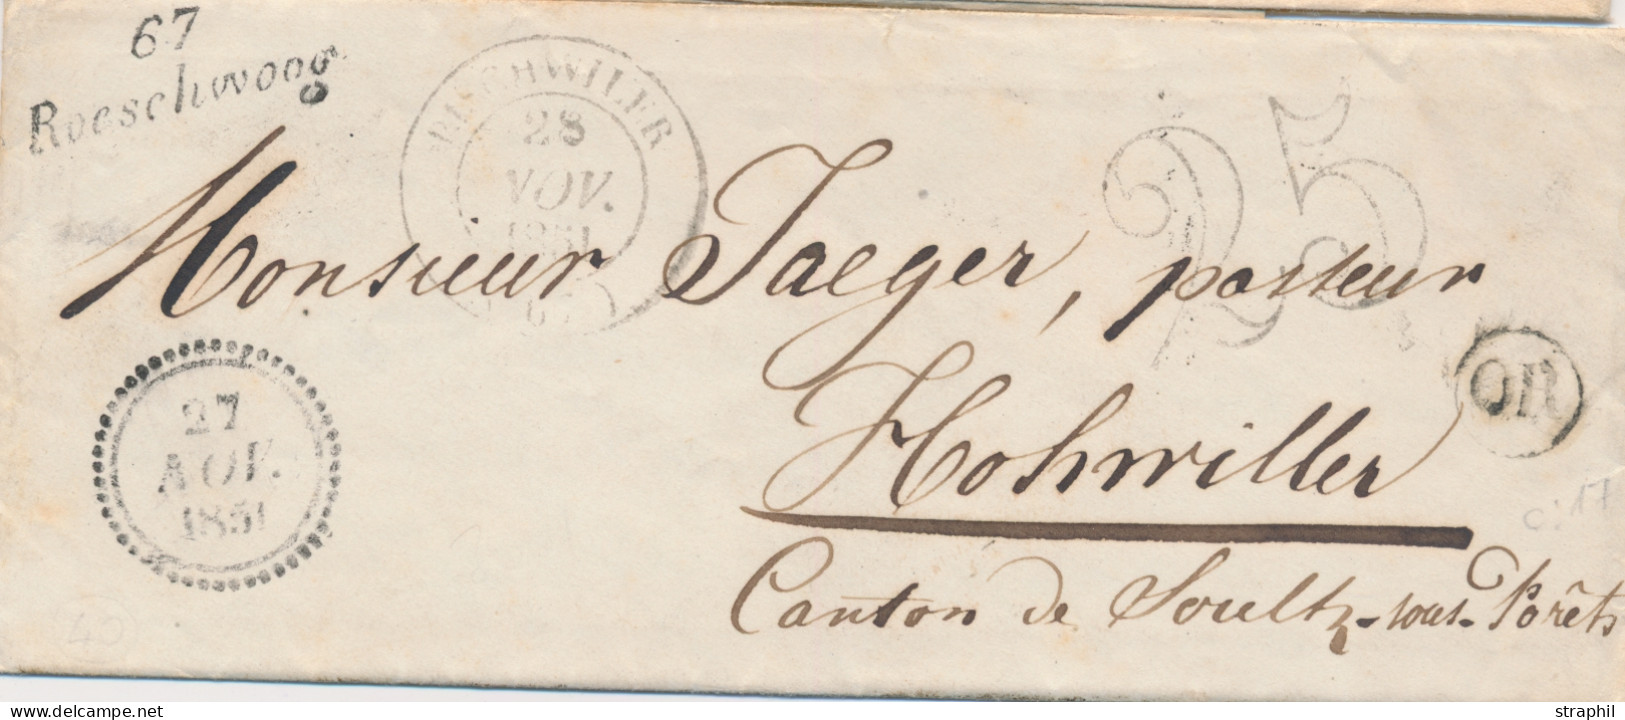 67
Roeschwoog
BISCHWILER
28
NOV.
1851
(67)
25
Monsieur Jaeger, pasteur
OR
27
NOV.
1851
Hohwiller
c:17
Canton de Soultz-sous-Forêts
40
delcampe.net
straphil